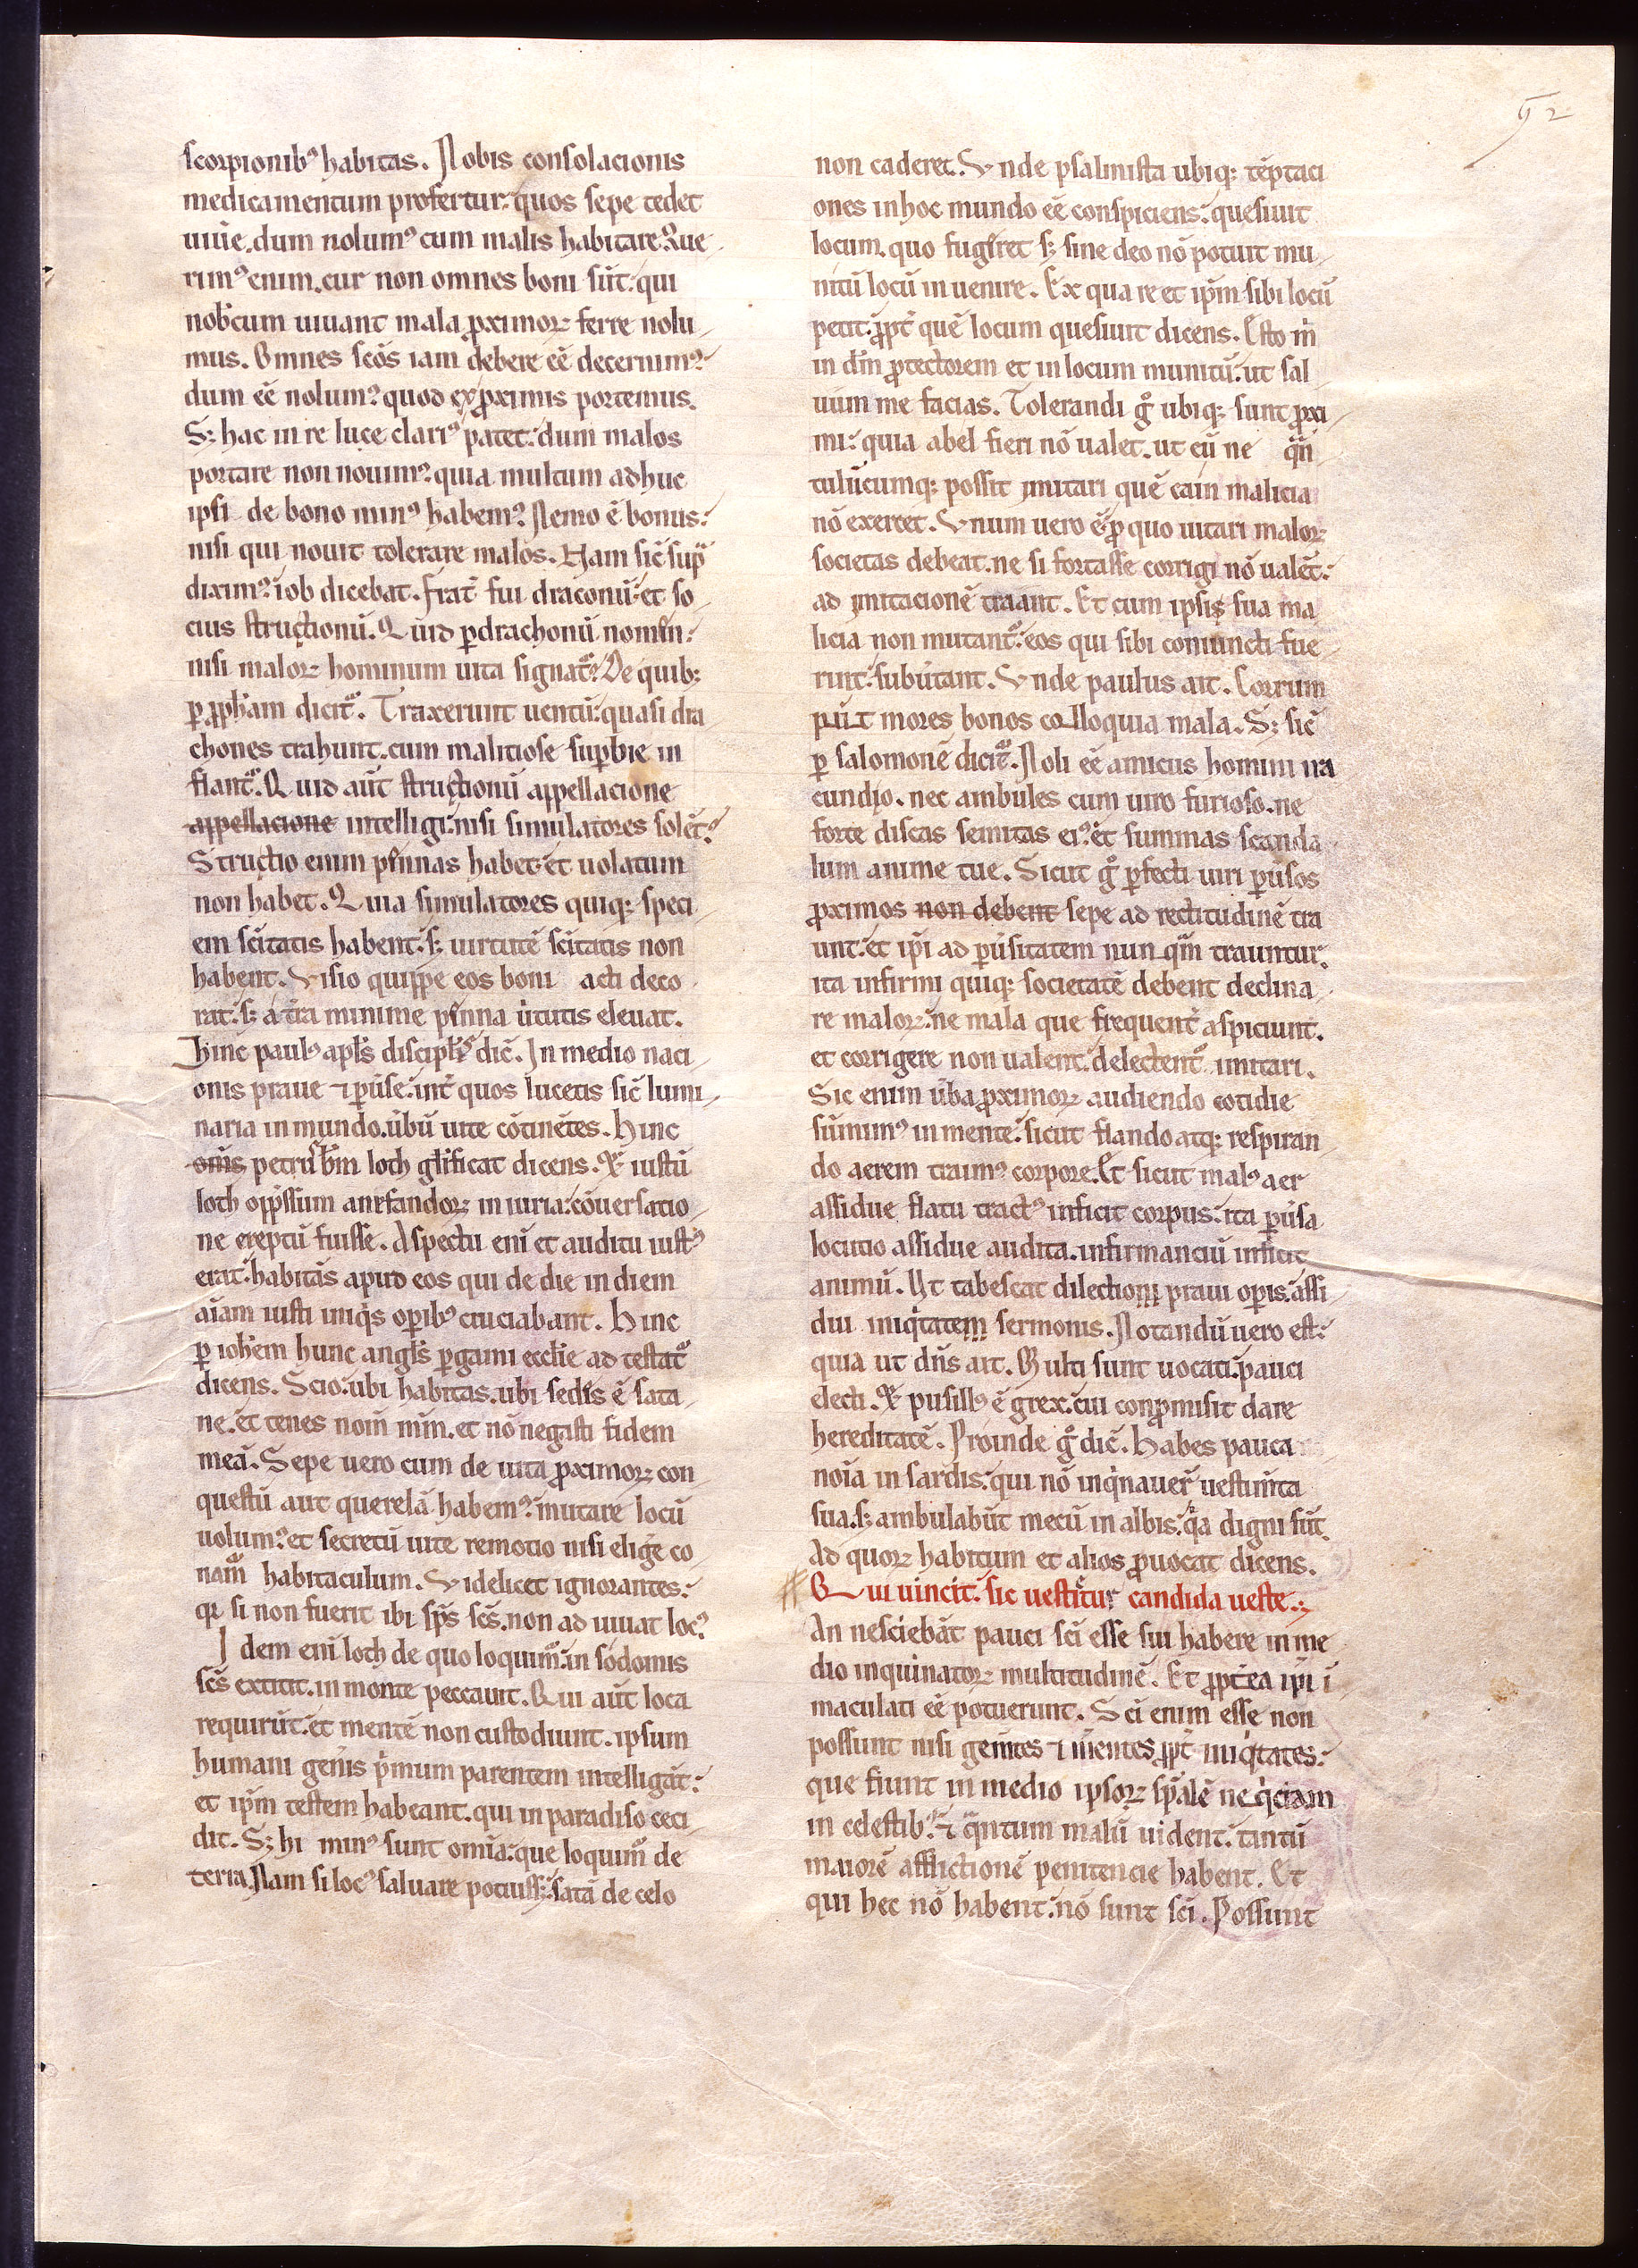 92
scorpionibꝰ habitas. Nobis consolacionis
medicamentum profertur: quos sepe tedet
uiu̾e. dum nolumꝰ cum malis habitare. Que
rimꝰ enim. cur non omnes boni sūt: qui
nob̄cum uiuant mala ꝓximoꝝ ferre nolu
mus. Omnes sc̄os iam debere eē decernimꝰ:
dum eē nolumꝰ: quod ex ꝓximis portemus.
Sꝫ hac in re luce clariꝰ patet: dum malos
portare non nouimꝰ: quia multum adhuc
ipsi de bono minꝰ habemꝰ. Nemo ē bonus:
nisi qui nouit tolerare malos. Nam sic̄ sup̄
diximꝰ: iob dicebat. frat̄ fui draconū: et so
cius structionū. Quid ꝑ drachonū nomen:
nisi maloꝝ hominum uita signat᷑? De quibꝫ
ꝑ ꝓph̄am dicit᷑. Traxerunt uentū: quasi dra
chones trahunt. cum malitiose suꝑbie in
flant᷑. Quid aūt structionū appellacione
appellacione intelligi: nisi simulatores solēt?
Structio enim pennas habet: et uolatum
non habet. Quia simulatores quiqꝫ speci
em sc̄itatis habent: sꝫ uirtutē sc̄itatis non
habent. Visio quippe eos boni acti deco
rat: sꝫ a t̄ra minime penna u̾tutis eleuat.
Hinc paulꝰ apl̄s discipl̄is dic̄. In medio naci
onis praue ⁊ ꝑu̾se: int̄ quos lucetis sic̄ lumi
naria in mundo. u̾bū uite cōtinētes. Hinc
om̄s petrus bm̄ loth gl̄ificat dicens. Qꝛ iustū
loth opp̄ssum a nefandoꝝ iniuria: cōuersatio
ne ereptū fuisse. Aspectu enī et auditu iustꝰ
erat: habitās apud eos qui de die in diem
aīam iusti iniqͥs oꝑibꝰ cruciabant. Hinc
ꝑ ioh̄em hunc angl̄s ꝑgami eccl̄ie ad testat᷑
dicens. Scio: ubi habitas. ubi sedes ē sata
ne. et tenes nom̄ mm̄. et nō negasti fidem
meā. Sepe uero cum de uita ꝓximoꝝ con
questū aut querelā habemꝰ: mutare locū
uolumꝰ: et secretū uite remotio nisi elig̾e co
nam᷑ habitaculum. Videlicet ignorantes:
qꝛ si non fuerit ibi sp̄s sc̄s. non ad iuuat locꝰ.
Idem enī loth de quo loquim᷑: in sodomis
sc̄s extitit. in monte peccauit. Qui aūt loca
requirūt: et mentē non custodiunt. ipsum
humani gen̾is p̾mum parentem intelligāt:
et ip̄m testem habeant. qui in paradiso ceci
dit. Sꝫ hi minꝰ sunt om̄ia: que loquim᷑ de
terra. Nam si locꝰ saluare potuissꝫ: satā de celo
non caderet. Vnde psalmista ubiqꝫ tēptaci
ones in hoc mundo eē conspiciens: quesiuit
locum. quo fugeret sꝫ sine deo nō potuit mu
nitū locū inuenire. Ex qua re et ip̄m sibi locū
petit: ꝓpt̄ quē locum quesiuit dicens. Esto m̄
in dm̄ ꝓtectorem et in locum munitū: ut sal
uum me facias. Tolerandi gͦ ubiqꝫ sunt ꝓxi
mi: quia abel fieri nō ualet. ut eū ne qᷓn
tulūcumqꝫ possit imitari quē cain malicia
nō exercet. Vnum uero ē: ꝓ quo uitari maloꝝ
societas debeat. ne si fortasse corrigi nō ualēt:
ad imitacionē traant. Et cum ipsis sua ma
licia non mutant᷑: eos qui sibi coniuncti fue
rint: subu̾tant. Vnde paulus ait. Corrum
pūt mores bonos colloquia mala. Sꝫ sic̄
ꝑ salomonē dicit᷑. Noli eē amicus homini ira
cundio. nec ambules cum uiro furioso. ne
forte discas semitas eiꝰ: et summas scanda
lum anime tue. Sicut gͦ ꝑfecti uiri ꝑu̾sos
ꝓximos non debent sepe ad rectitudinē tra
unt: et ip̄i ad ꝑu̾sitatem nun qᷓm trauntur:
ita infirmi quiqꝫ societatē debent declina
re maloꝝ: ne mala que frequent̾ aspiciunt.
et corrigere non ualent: delectent᷑ imitari.
Sic enim u̾ba ꝓximoꝝ audiendo cotidie
sūmimꝰ in mente: sicut flando atqꝫ respiran
do aerem traimꝰ corpore. Et sicut malꝰ aer
assidue flatu tractꝰ inficit corpus: ita ꝑu̾sa
locutio assidue audita. infirmanciū inficit
animū. Vt tabescat dilectioni praui oꝑis: assi
dui iniqͥtatem sermonis. Notandū uero est:
quia ut dn̄s ait. Multi sunt uocati: pauci
electi. Qꝛ pusillꝰ ē grex: cui conꝓmisit dare
hereditatē. Proinde gͦ dic̄. Habes pauca
noīa in sardis: qui nō inqͥnauer̄ uestim̄ta
sua. sꝫ ambulabūt mecū in albis: qͥa digni sūt.
Ad quoꝝ habitum et alios ꝓuocat dicens.
Qui uincit: sic uestietur candida ueste.
An nesciebāt pauci sc̄i esse sui habere in me
dio inquinatoꝝ multitudinē. Et ꝓpt̄ea ip̄i ī
maculati eē potuerunt. Sc̄i enim esse non
possunt nisi gem̄tes ⁊ m̄entes ꝓpt̄ iniqͥtates:
que fiunt in medio ipsoꝝ sp̄alē neqͥciam
in celestibꝰ: ⁊ qᷓntum malū uident: tantū
maiorē afflictionē penitencie habent. Et
qui hec nō habent: nō sunt sc̄i. Possunt